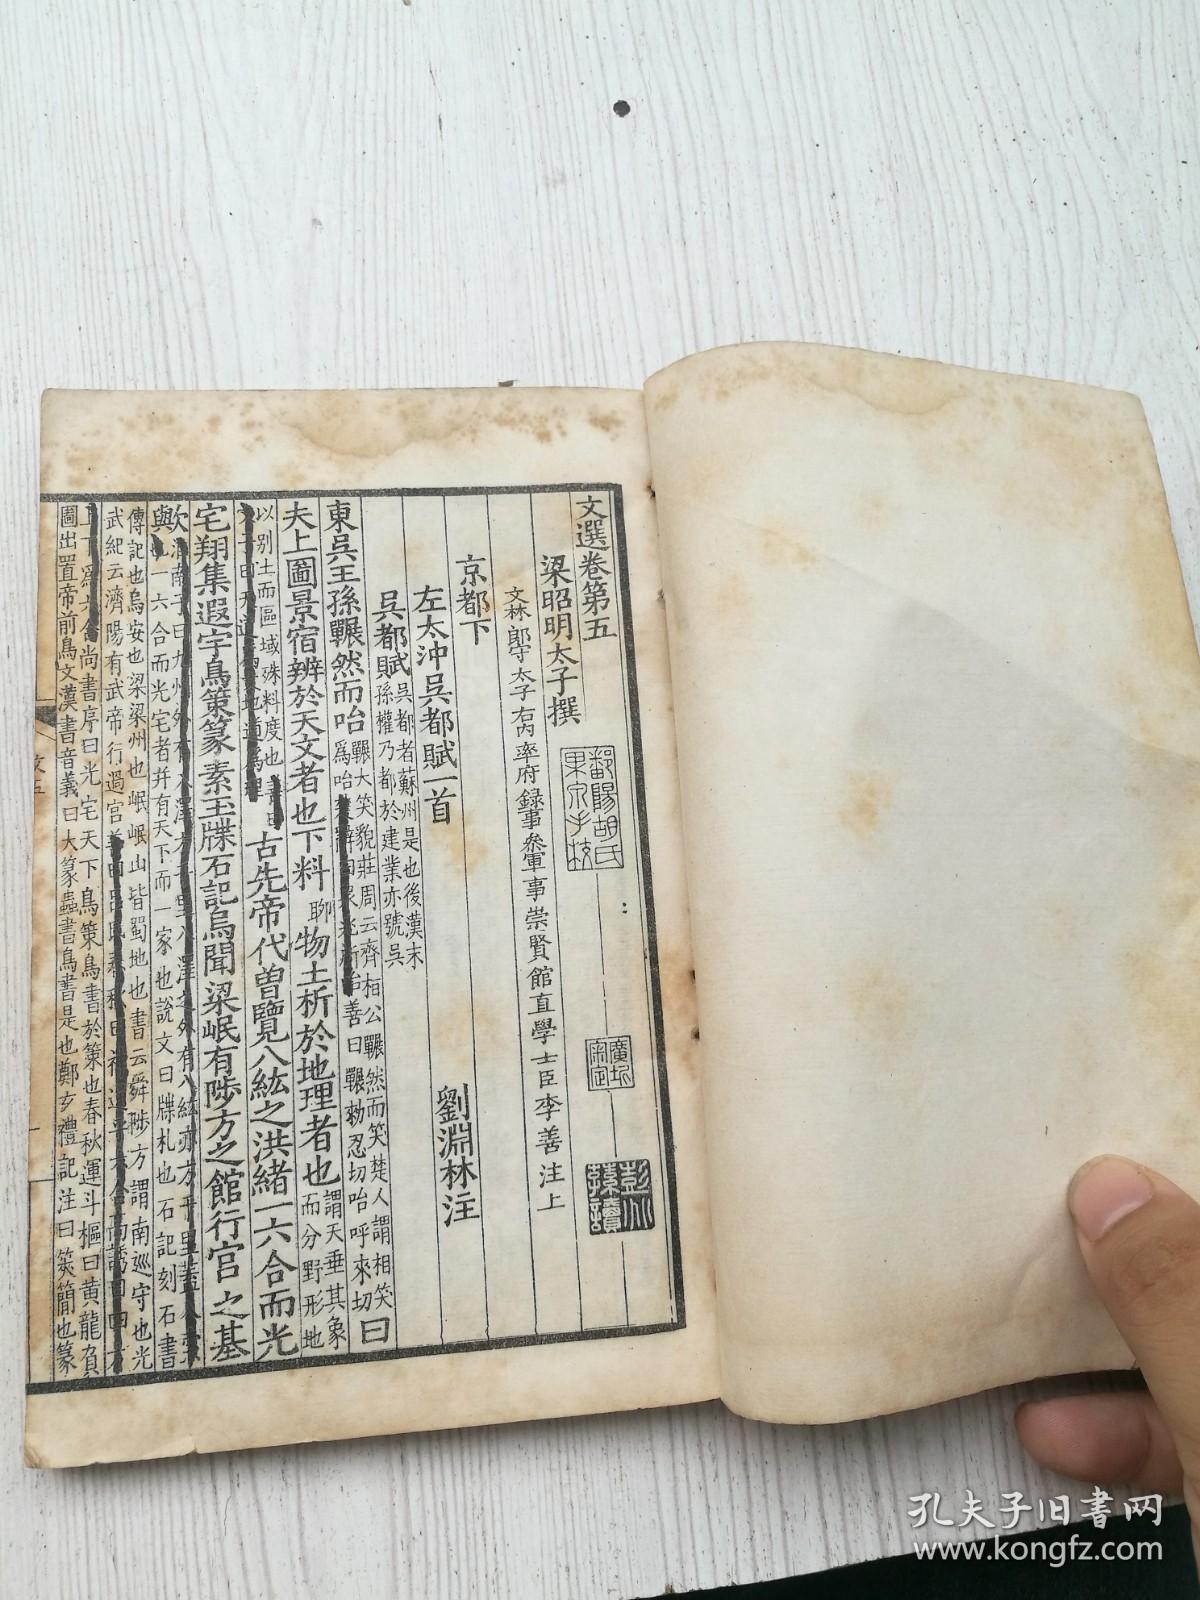 文選卷第五
鄱陽胡氏
果泉手校
彭
讀
梁昭明太子撰
文林郎守太子右內率府録事參軍事崇賢館直學士臣李善注上
京都下
左太沖吳都賦一首
劉淵林注
吳都賦
吳都者蘇州是也後漢末
孫權乃都於建業亦號吳
東吳王孫囅然而咍
囅大笑貌莊周云齊桓公囅然而笑楚人謂相笑
爲咍
善曰囅勑忍切咍呼來切
曰
夫上圖景宿辨於天文者也下料
聊
物土析於地理者也
謂天垂其象
而分野形地
以别土而區域殊料度也
古先帝代曽覽八紘之洪緒一六合而光
宅翔集遐宇鳥策篆素玉牒石記烏聞梁岷有陟方之館行宮之基
歟
與
一六合而光宅者并有天下而一家也說文曰牒札也石記刻石書
傳記也烏安也梁梁州也岷岷山皆蜀地也書云舜陟方謂南巡守也光
武紀云濟陽有武帝行過宮
尚書序曰光宅天下鳥策鳥書於策也春秋運斗樞曰黄龍負
圖出置帝前鳥文漢書音義曰大篆蟲書鳥書是也鄭玄禮記注曰策簡也篆
孔夫子旧书网
www.kongfz.com